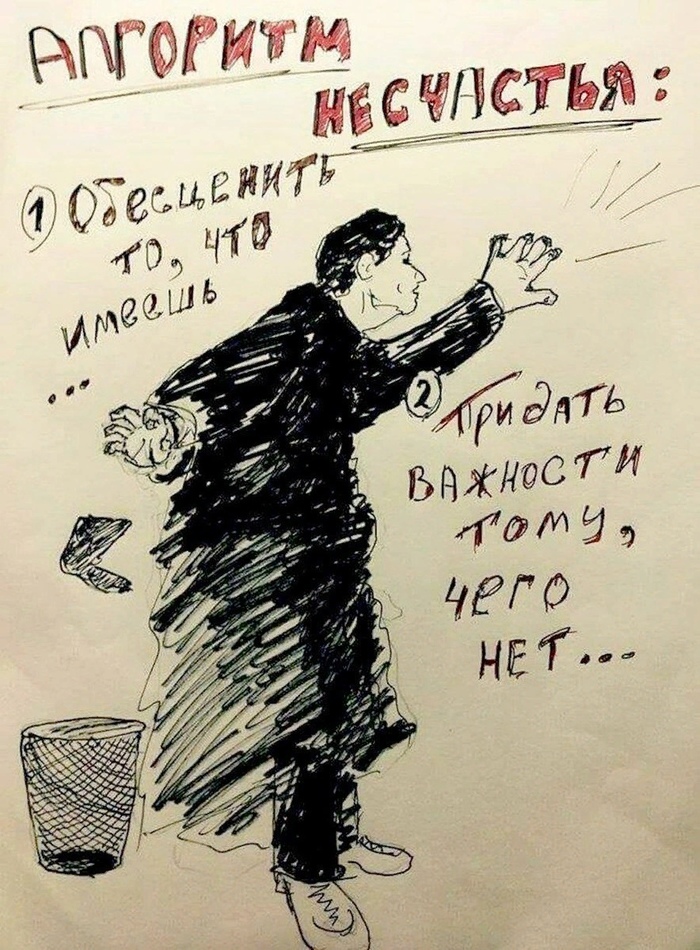 АЛГОРИТМ
НЕСЧАСТЬЯ:
1 Обесценить
то, что
имеешь
...
2 Придать
важности
тому,
чего
нет...